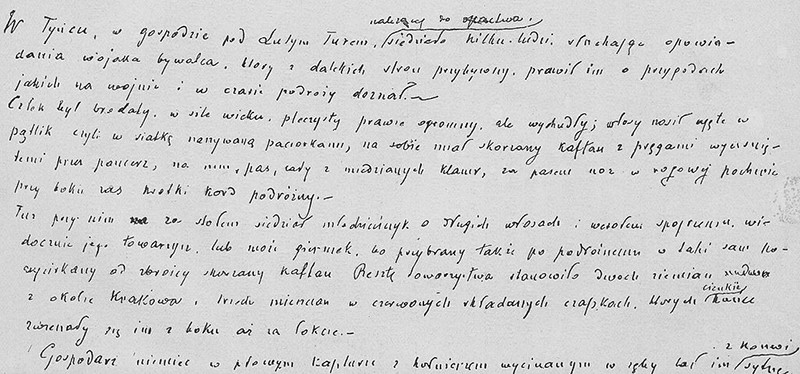 należącej do opactwa.
W Tyńcu, w gospodzie pod Lutym Turem, siedziało kilku ludzi, słuchając opowia-
dania wojaka bywalca, który z dalekich stron przybywszy, prawił im o przygodach
jakich na wojnie i w czasie podróży doznał.—
Człek był brodaty, w sile wieku, pleczysty prawie ogromny, ale wychudły; włosy nosił ujęte w
pątlik czyli w siatkę naszywaną paciorkami, na sobie miał skórzany kaftan z pręgami wyciśnię-
temi przez pancerz, na nim pas, cały z miedzianych klamr, za pasem nóż w rogowej pochwie
przy boku zaś krótki kord podróżny.—
Tuż przy nim za stołem siedział młodzieńczyk o długich włosach i wesołem spojrzeniu, wi-
docznie jego towarzysz, lub może giermek, bo przybrany także po podróżnemu w taki sam po-
wyciskany od zbroicy skórzany kaftan Resztę towarzystwa stanowiło dwóch ziemian
z okolic Krakowa i trzech mieszczan w czerwonych składanych czapkach, których cienkie końce
zwieszały się im z boku aż na łokcie.—
z konwi
Gospodarz niemiec w płowym kapturze z kołnierzem wycinanym w zęby lał im sytne